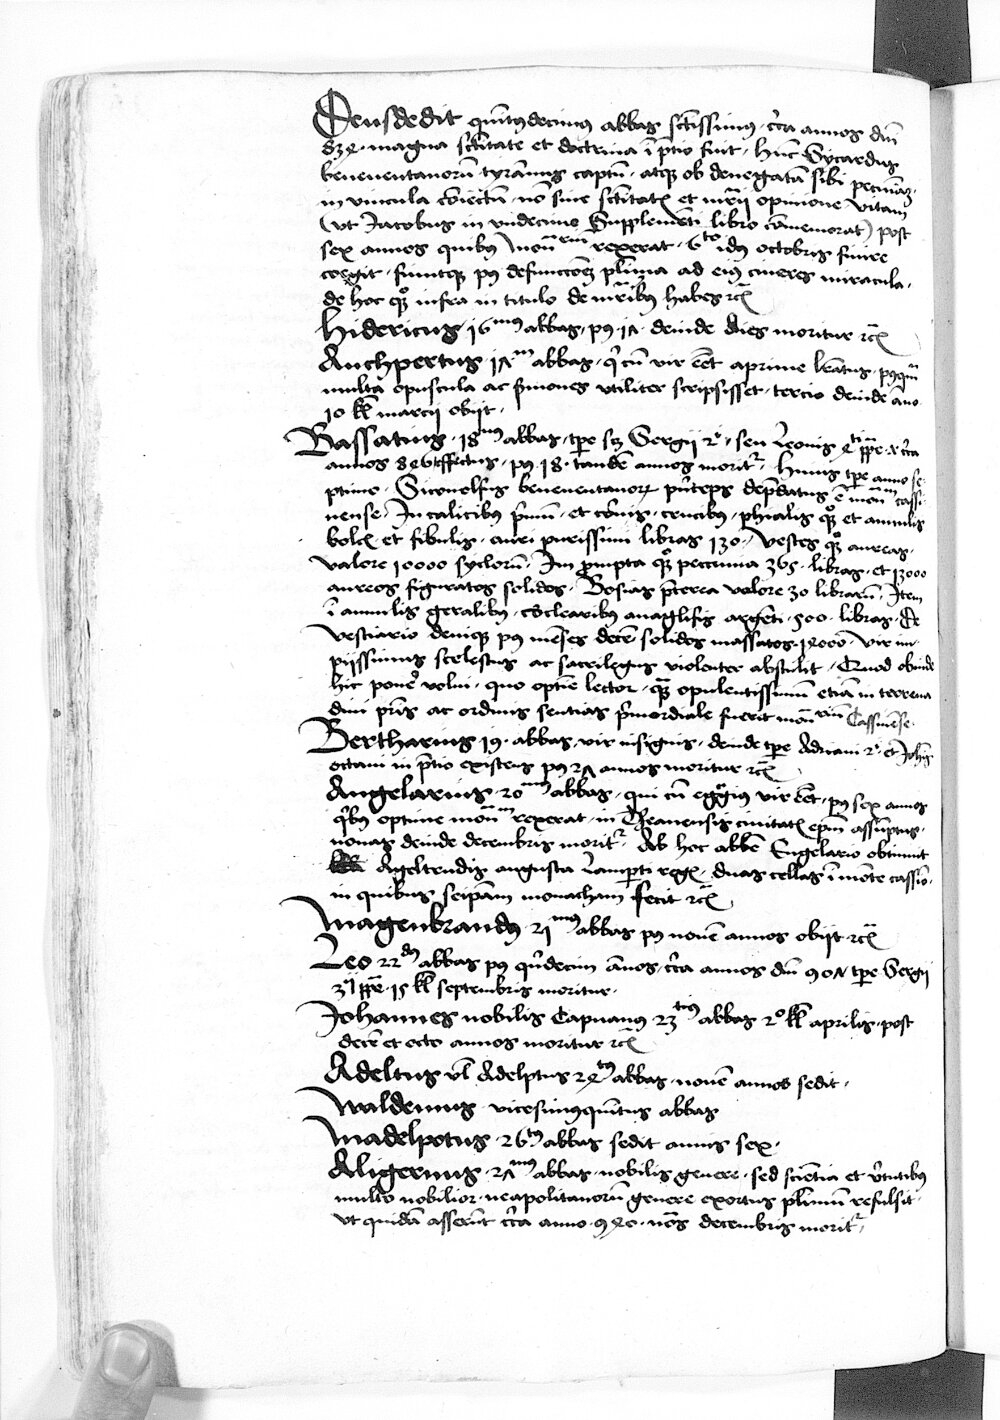 Deusdedit quĩtusdecimus abbas sctissimus, cr̃ca annos dñi
834. magna sc̃titate et doctrina ĩ p̃tio fuit. Hũc Sycardus
beneuentanorũ tyrãnus captũ, atque ob denegatã sibi pecuniã
in vincula cõiectũ, nõ sine sc̃titatis et mr̃ii opinione vitam
(vt Jacobus in vndecimo Supplemẽti libro cõmemorat) post
sex annos quibus monriũ rexerat. 6to idus octobris finire
coegit. fiuntque pus defunctionẽ plurima ad eius cineres miracula.
de hoc quoque infra in titulo de mr̃ibus habes rc̃
Hildericus 16mus abbas, pus 17 deinde dies moritur rc̃
Authpertus 17m abbas. qui cũ vir eẽt aprime lr̃atus, pusquã
multa opuscula ac sermones vtiliter scripsisset. tercio deinde ãno
10 kł marcii obijt.
Bassatius. 18mus abbas, tpe scz Sergii 2i, seu Leonis 4ti ppe. et cr̃ca
annos 846 effectus. pus 18. tandẽ annos moritr. Huius tpe anno se-
ptimo. Siconolfus beneuentanorum p̃nceps dep̃datus ẽ monriũ cassi-
nense. In calicibus primũ. et coronis. crucibus. phialis quoque et amulis
bolis et fibulis. auri purissimi libras 130. Vestes quoque aureas.
valore 10000 syclorũ. In prompta quoque peccunia 365. libras. et 13000
aureos figuratos solidos. Bosias p̃terea valore 30 librarũ. Item
ĩ amulis geralibus. cõclearibus anaglifis argẽti. 500. libras. De
vestiario denique pus mẽses decẽ solidos massatos. 14000. Vir im-
pijssimus scelestus ac sacrilegus violenter abstulit. Quod obinde
hic poner̃ volui. quo optie lector. quam opulentissimũ etiã in terrena
diui pr̃is ac ordinis sentias p̃mordiale fuerit monriũ Cassinẽse.
Bertharius 19. abbas, vir insignis. deinde tpe Adriani 2i et Johis
octaui in p̃tio existens pus 27 annos moritur rc̃
Angelarius. 20mus abbas. qui cũ egregius vir eẽt. pus sex annos
quibus optime monriũ rexerat. in Theanensis ciuitatis ep̃m assũptus.
nonas deinde decembris moritr. Ab hoc abbẽ Engelario obtinuit
Ageltrudis augusta Lamperti regis. duas cellas ĩ mõte cassino.
in quibus seip̃am monacham fecit rc̃
Magenbrandus 21mus abbas pus nouẽ annos obijt rc̃
Leo 22dus abbas pus quĩdecim ãnos, cr̃ca annos dñi 907 tpe Sergii
3ii ppe. 15 kł septembris moritur.
Johannes nobilis Capuanus 23tius abbas 2o kł aprilis, post
decẽ et octo annos moritur rc̃
Adeltus vł Adelptus 24tus abbas. nouẽ annos sedit.
Waldemus vicesimusquĩtus abbas
Madelpotus. 26tus abbas sedit annis sex.
Aligernus. 27mus abbas. nobilis genere. sed sciẽtia et v̓tutibus
multo nobilior. neapolitanorũ genere exortus plurimũ refulsit.
vt quidã asserũt cr̃ca anno. 940. noñs decembris moritr.